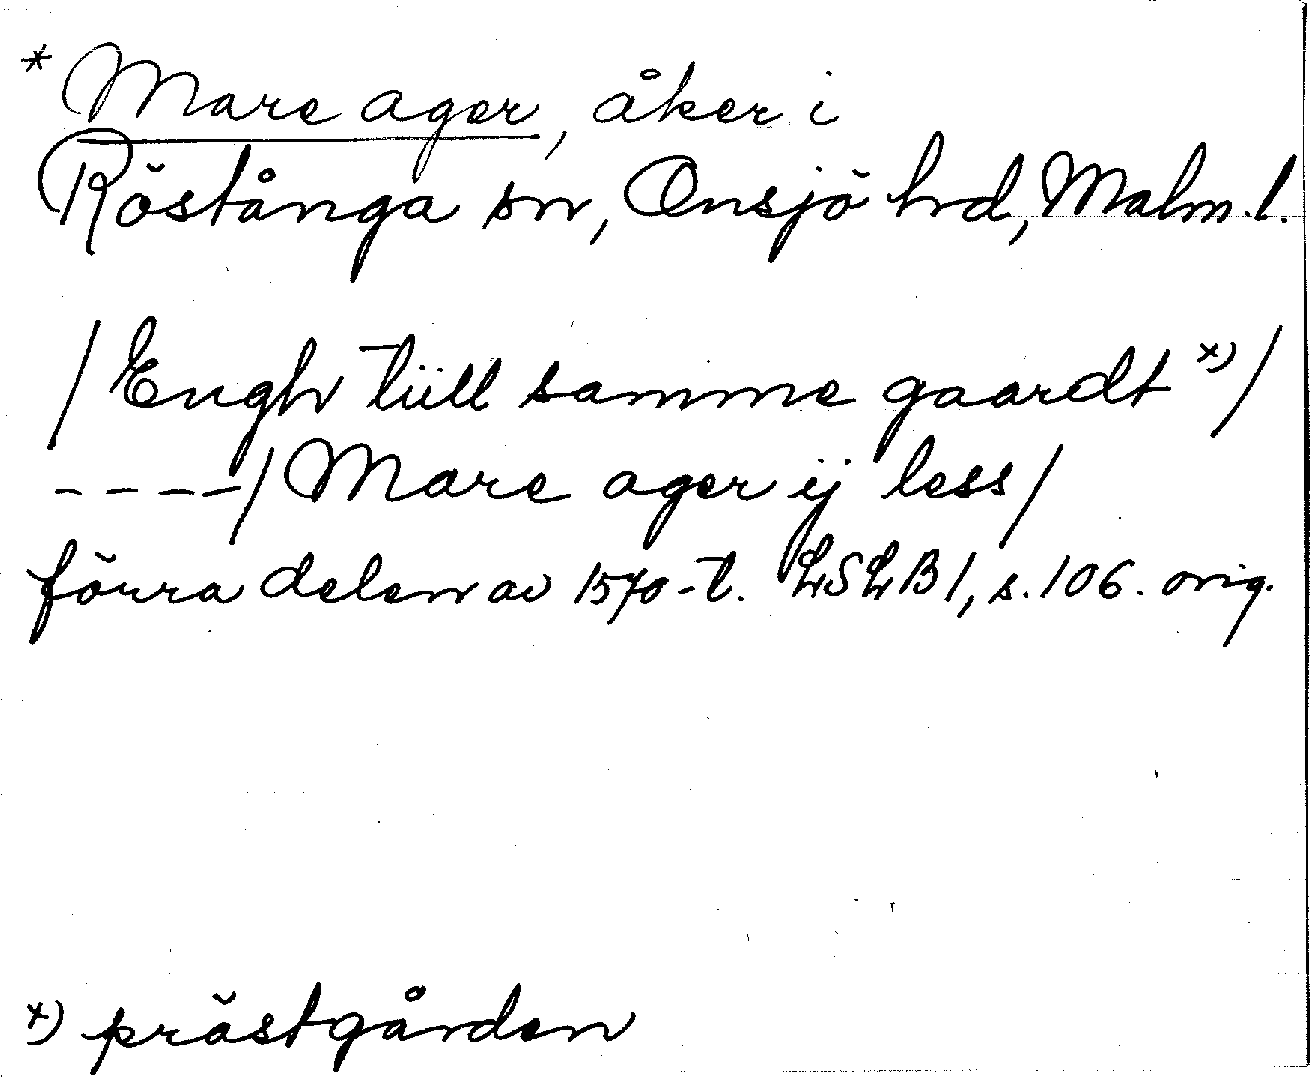 * Mare ager, åker i
Röstånga sn, Onsjö hrd, Malm. l.
/ Engh tiill samme gaardt x) /
----/ Mare ager ij less /
förra delen av 1570-t. LSLB 1, s. 106. orig.
x) prästgården